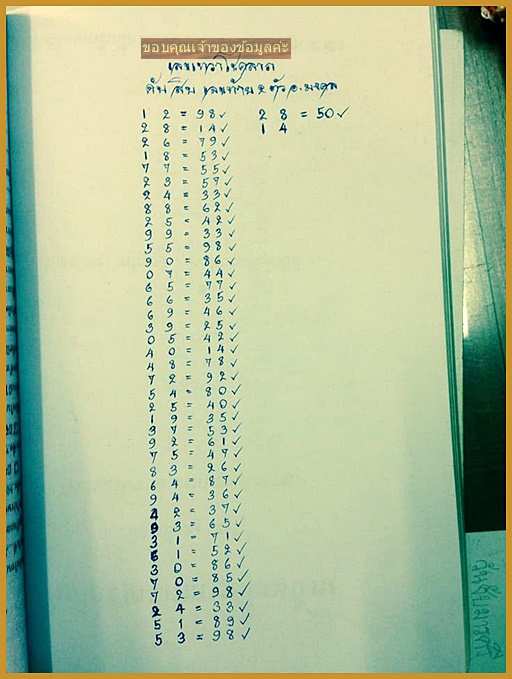 ขอบคุณเจ้าของข้อมูลค่ะ
ดับ สิบ เลขท้าย 2 ตัว
1 2 = 98✓ 2 8 = 50✓
2 8 = 14✓ 1 4
2 6 = 79✓
1 8 = 53✓
7 7 = 55✓
2 3 = 57✓
2 4 = 33✓
8 8 = 62✓
2 5 = 42✓
9 9 = 33✓
5 5 = 98✓
9 0 = 86✓
0 7 = 44✓
6 5 = 77✓
6 6 = 35✓
6 9 = 46✓
3 9 = 25✓
0 5 = 42✓
4 0 = 14✓
4 8 = 78✓
7 2 = 92✓
5 4 = 80✓
2 5 = 40✓
1 9 = 35✓
3 7 = 53✓
9 2 = 61✓
7 5 = 49✓
8 3 = 26✓
6 4 = 87✓
9 4 = 36✓
4 2 = 37✓
9 3 = 65✓
3 1 = 71✓
1 = 52✓
3 0 = 86✓
7 0 = 85✓
7 2 = 98✓
2 4 = 33✓
5 1 = 89✓
5 3 = 98✓